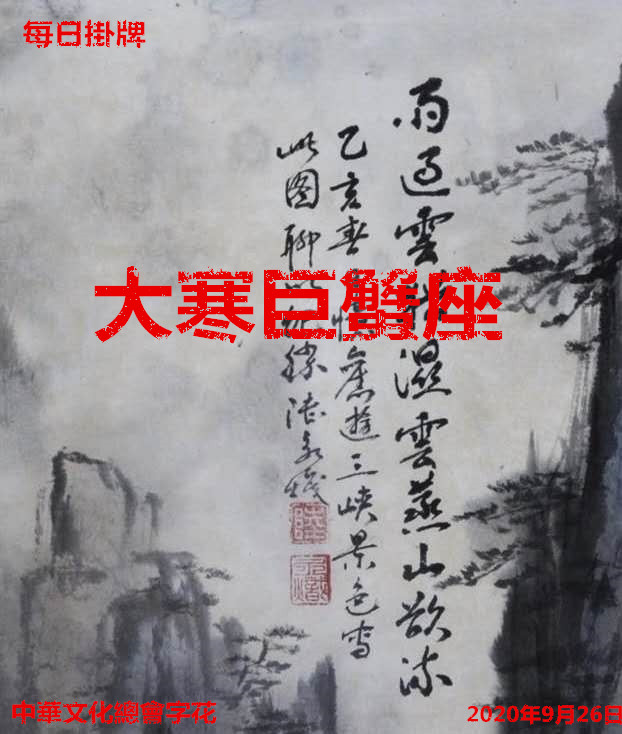 每日掛牌
雨过雲濕雲蒸山欲流
乙亥春憶舊遊三峽景色写
此图聊以
大寒巨蟹座
中華文化總會字花
2020年9月26日